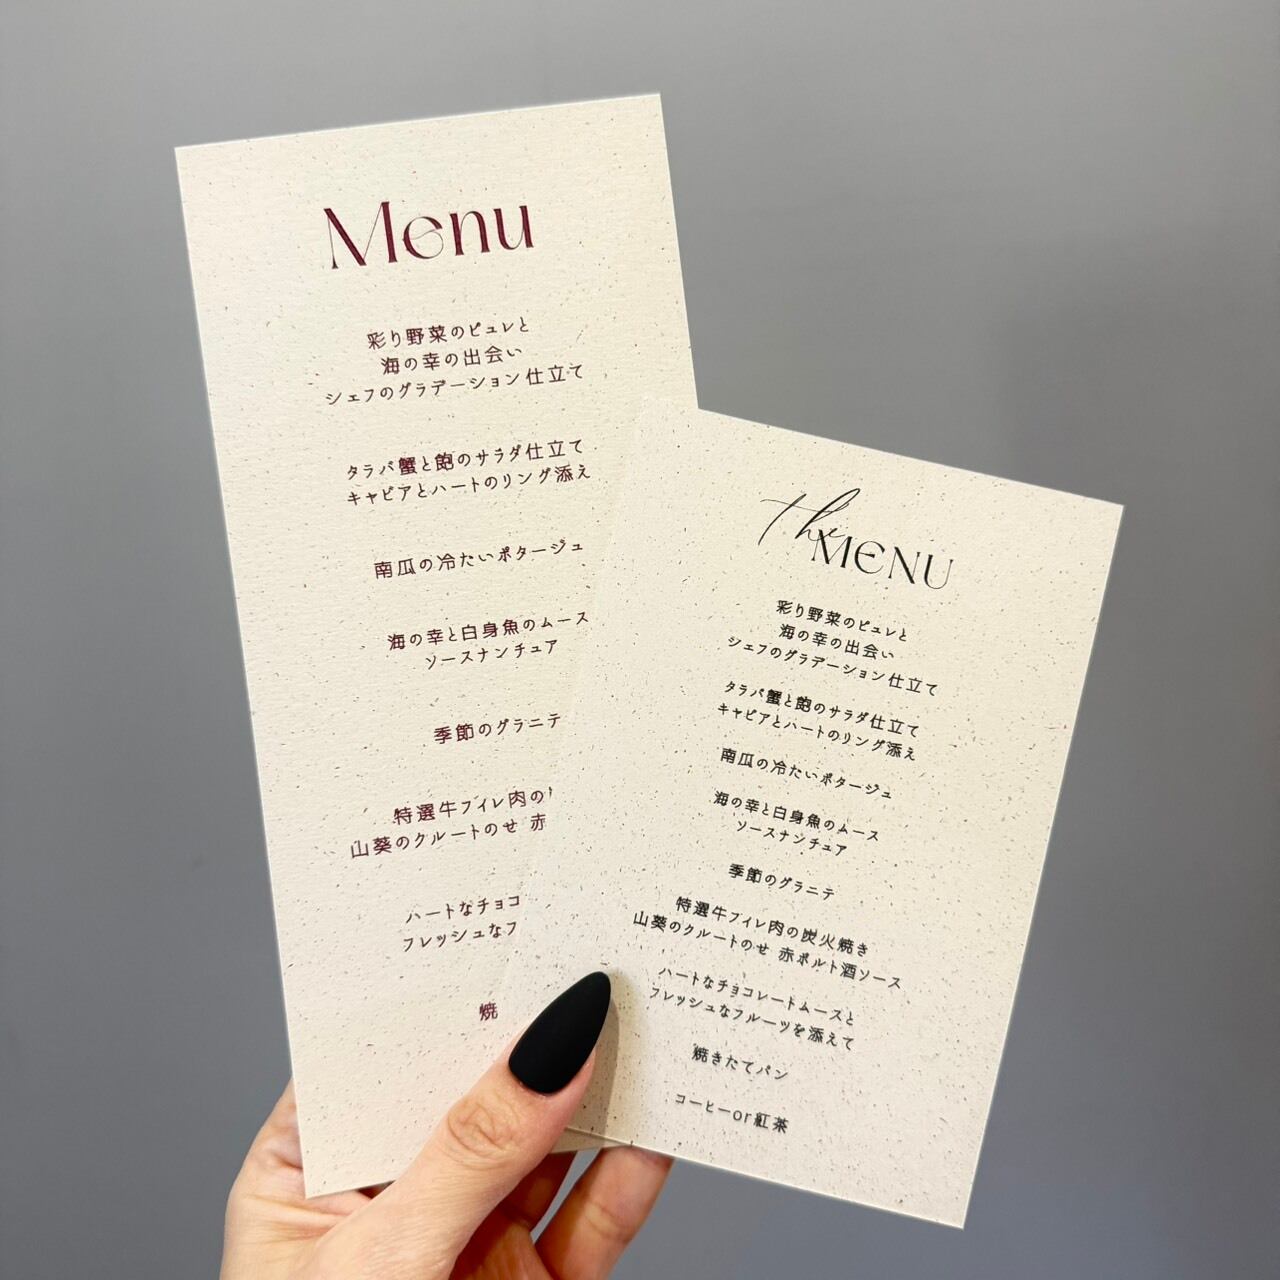 Menu
彩り野菜のピュレと
海の幸の出会い
シェフのグラデーション仕立て
タラバ蟹と鮑のサラダ仕立て
キャビアとハートのリング添え
南瓜の冷たいポタージュ
海の幸と白身魚のムース
ソースナンチュア
季節のグラニテ
特選牛フィレ肉の
山葵のクルートのせ 赤
ハートなチョコ
フレッシュなフ
焼
the MENU
彩り野菜のピュレと
海の幸の出会い
シェフのグラデーション仕立て
タラバ蟹と鮑のサラダ仕立て
キャビアとハートのリング添え
南瓜の冷たいポタージュ
海の幸と白身魚のムース
ソースナンチュア
季節のグラニテ
特選牛フィレ肉の炭火焼き
山葵のクルートのせ 赤ポルト酒ソース
ハートなチョコレートムースと
フレッシュなフルーツを添えて
焼きたてパン
コーヒーor紅茶